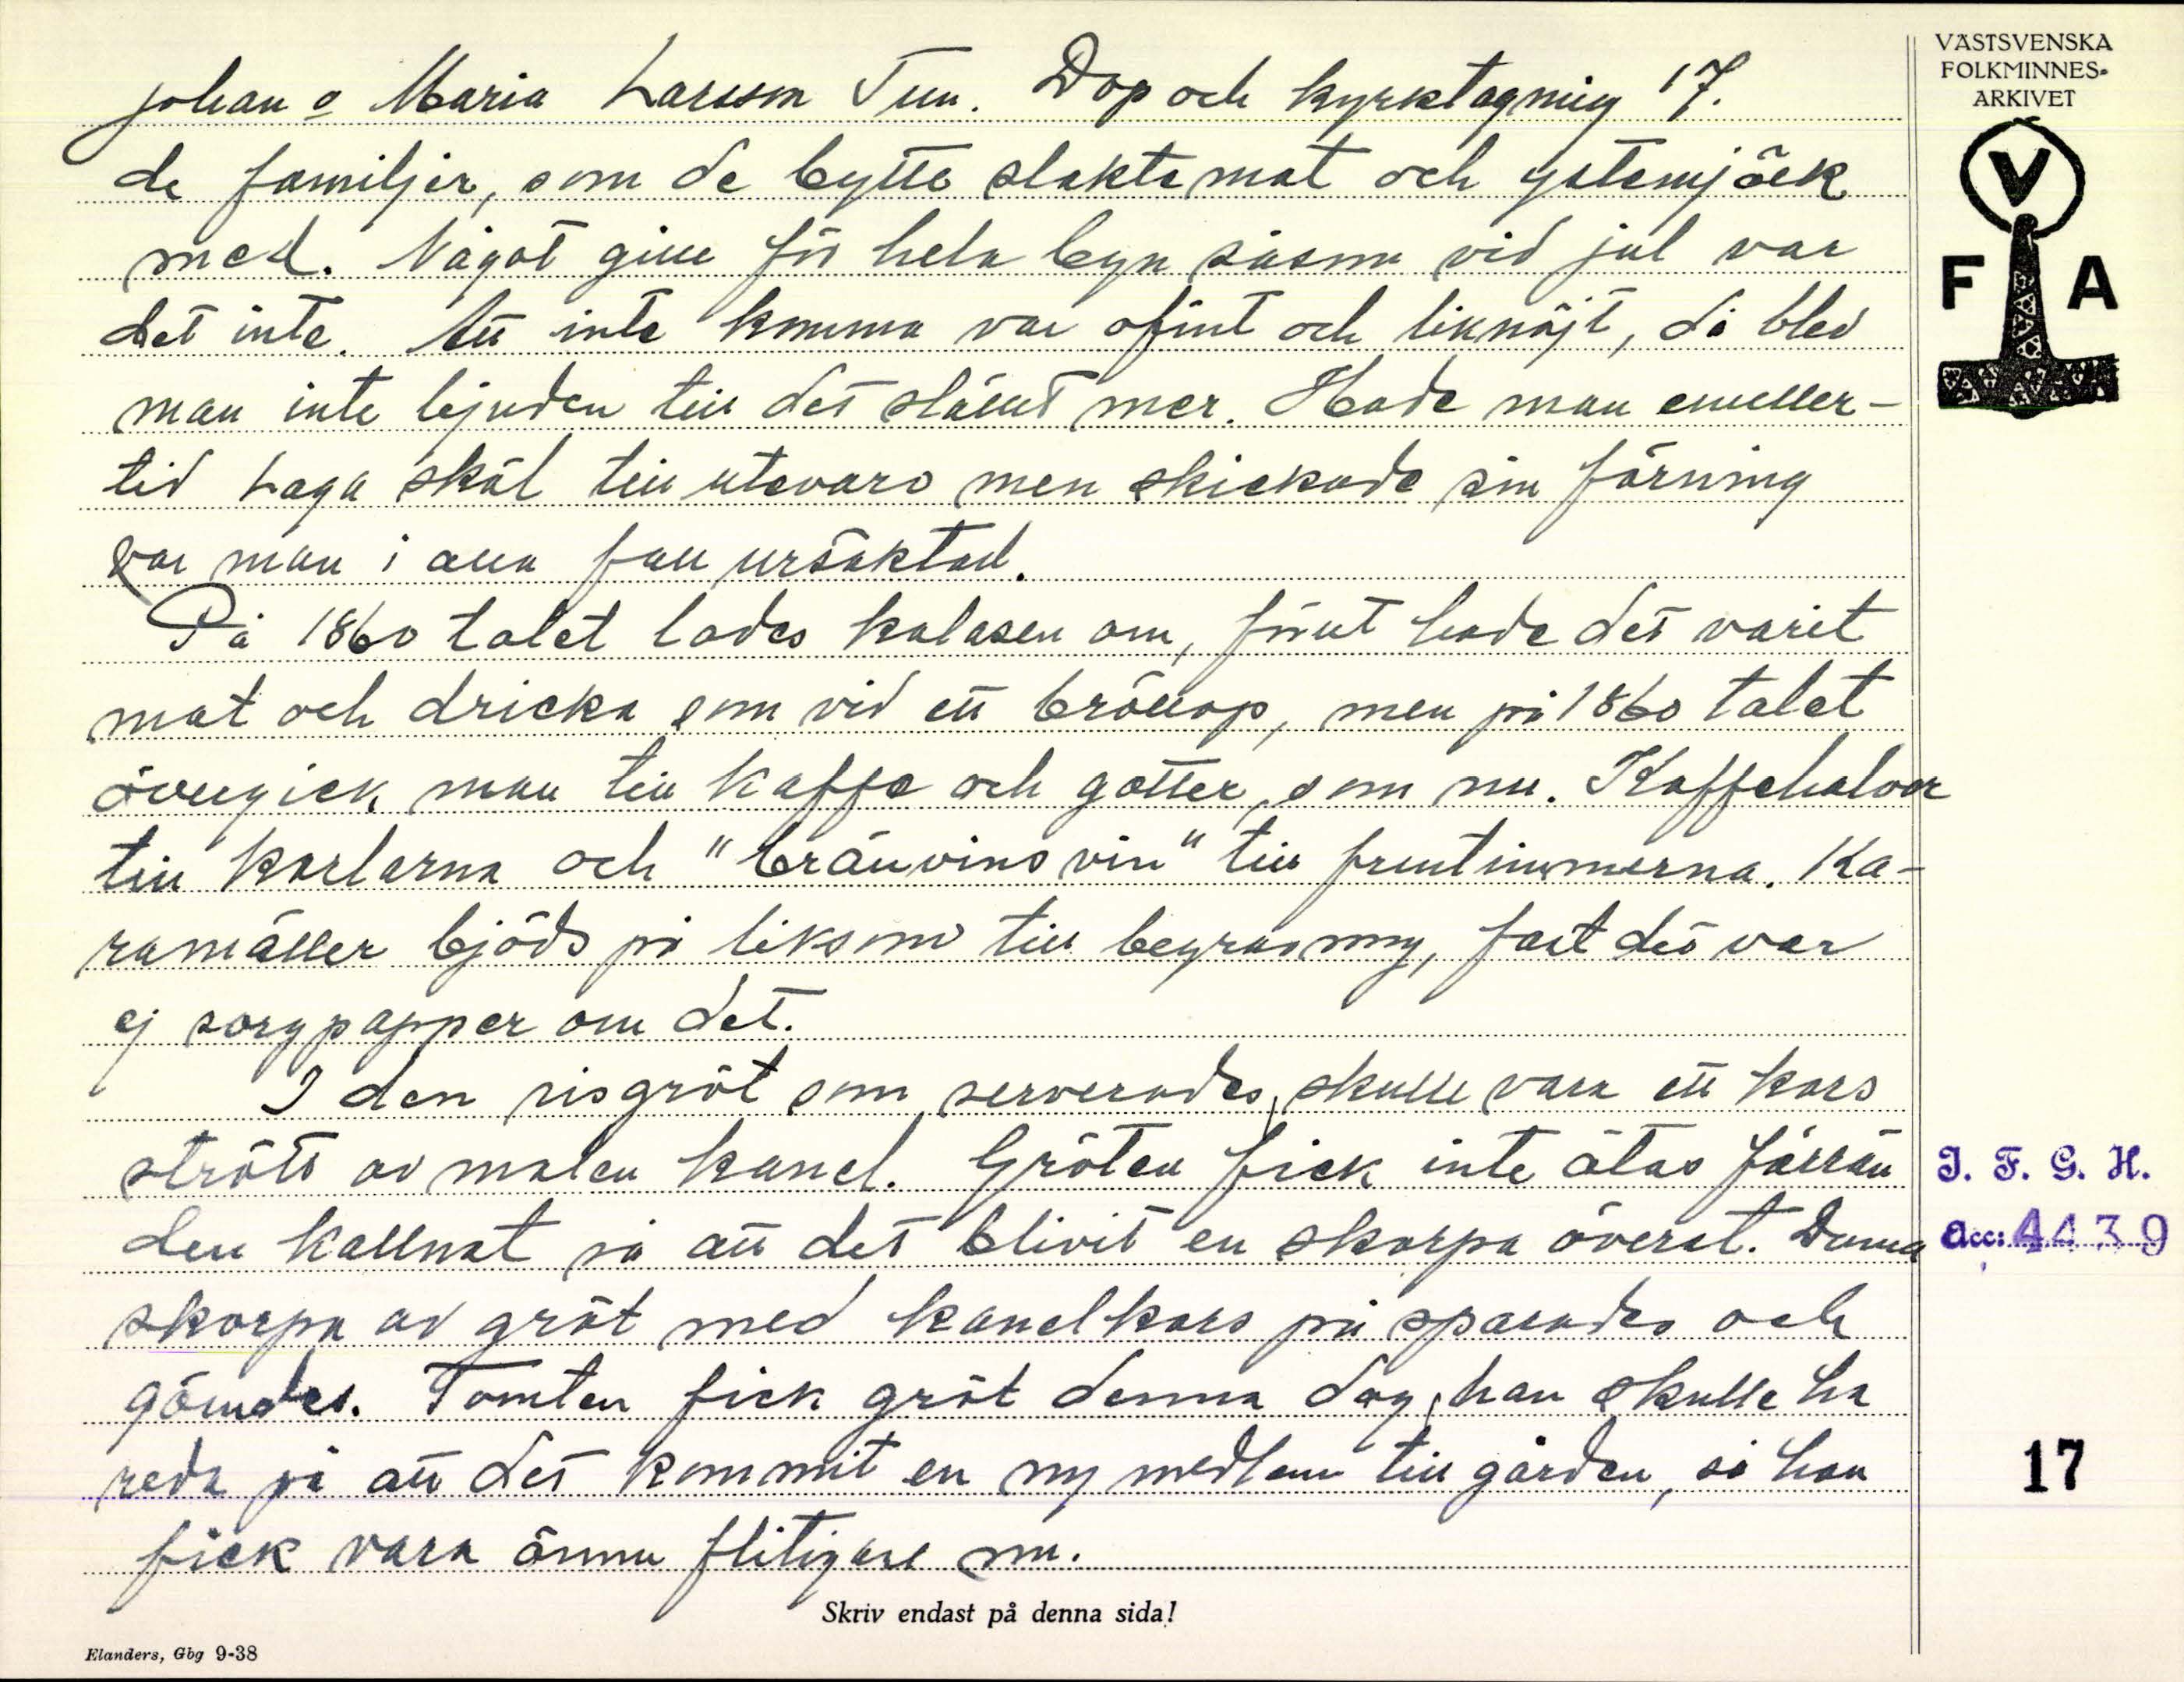 Johan o Maria Larsson Tun. Dop och kyrktagning 17.
de familjer, som de bytte slaktemat och ystemjölk
med. Något gille för hela byn såsom vid jul var
det inte. Att inte komma var ofint och liknöjt, då blev
man inte bjuden till det stället mer. Hade man emeller-
tid Laga skäl till utevaro men skickade sin förning
var man i alla fall ursäktad.
På 1860 talet lades kalasen om, förut hade det varit
mat och dricka som vid ett bröllop, men på 1860 talet
övergick man till kaffe och gotter, som nu. Kaffehalvor
till karlarna och "brännvins vin" till fruntimmerna. Ka-
ramäller bjöds på liksom till begravning, fast det var
ej sorgpapper om det.
I den risgröt som serverades, skulle vara ett kors
strött av malen kanel. Gröten fick inte ätas förrän
den kallnat så att det blivit en skorpa överst. Denna
skorpa av gröt med kanelkors på sparades och
gömdes. Tomten fick gröt denna dag, han skulle ha
reda på att det kommit en ny medlem till gården, så han
fick vara ännu flitigare nu.
Skriv endast på denna sida!
Elanders, Gbg 9-38
VÄSTSVENSKA
FOLKMINNES-
ARKIVET
V
F A
I. F. G. H.
Acc: 4439
17